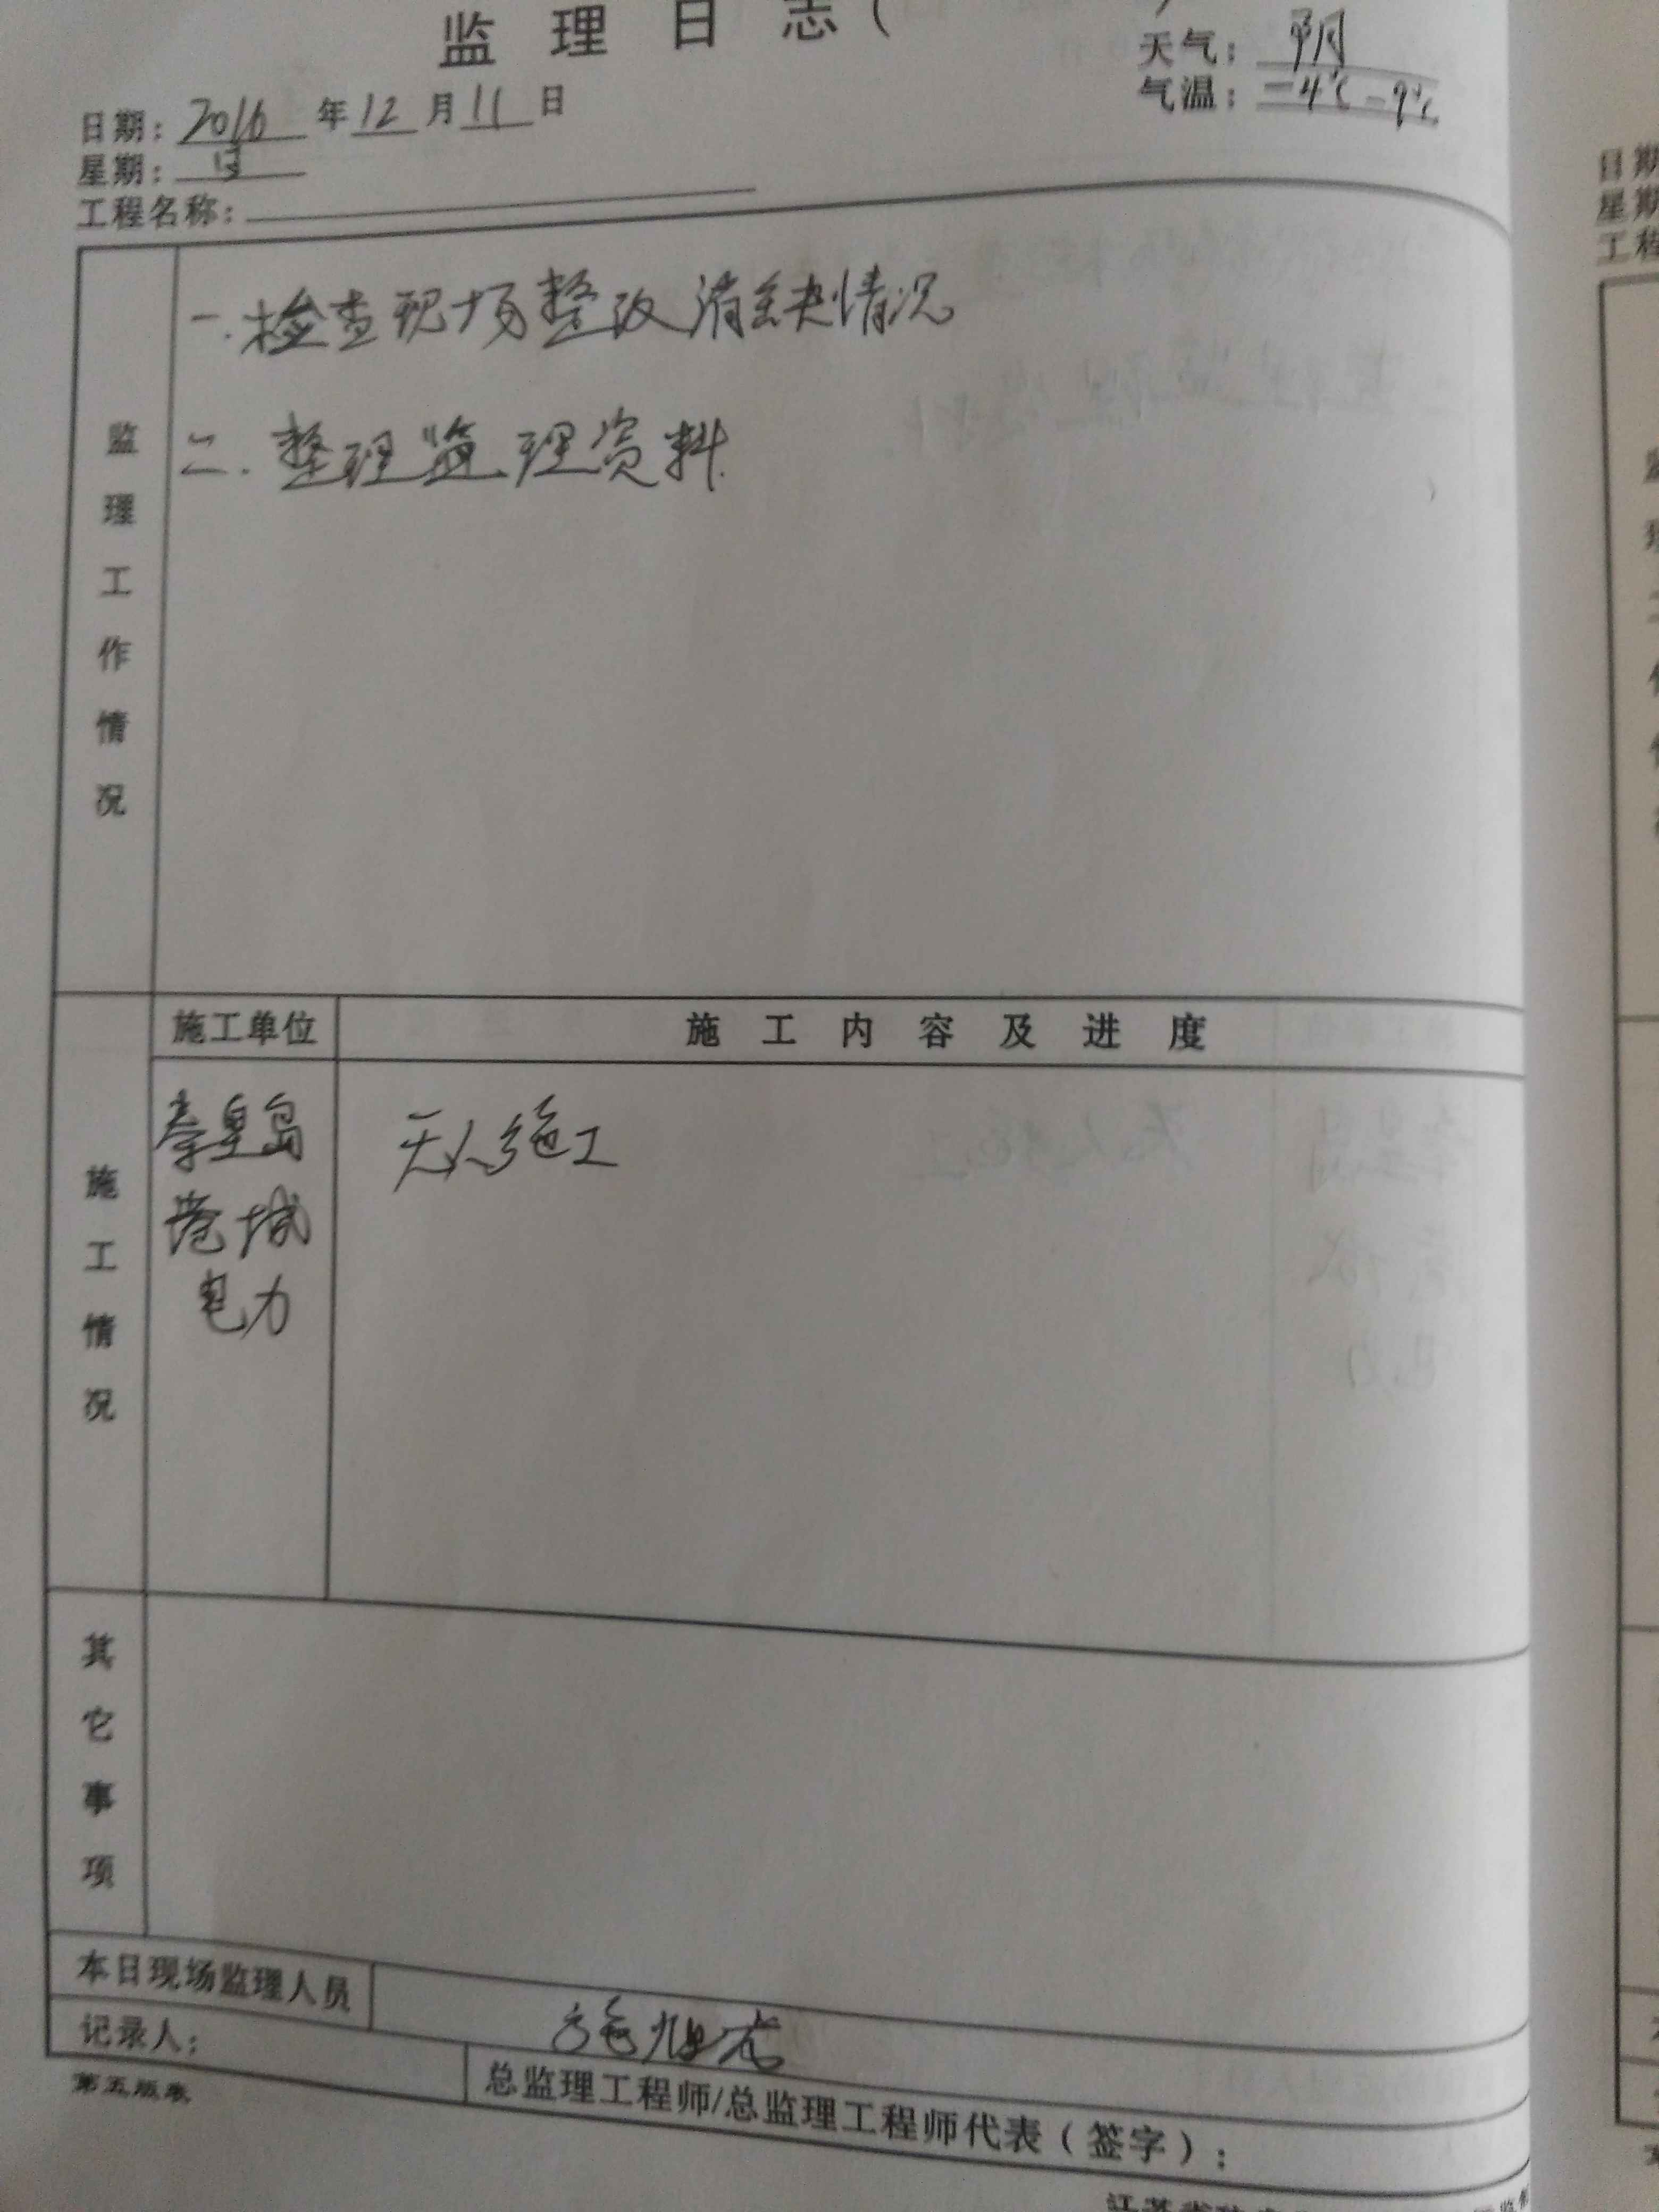 监理日志（
天气：阴
日期：2016年12月11日
气温：-4℃-9℃
星期：日
工程名称：
监理工作情况
一.检查现场整改消缺情况
二.整理监理资料.
施工情况
施工单位 施工内容及进度
秦皇岛 无人施工
港城
电力
其它事项
本日现场监理人员
记录人：
总监理工程师/总监理工程师代表（签字）：
第五版表
日期
星期
工程